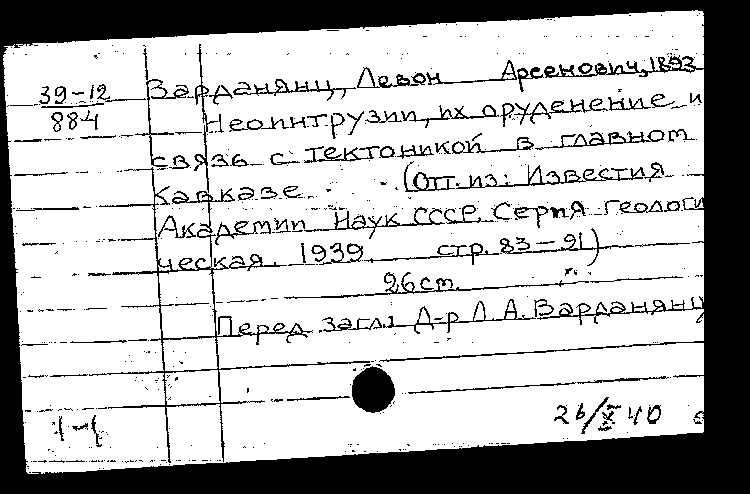 39-12
884
Варданянц, Левон Арсенович, 1893
Неоинтрузии, их оруденение и
связь с тектоникой в главном
Кавказе. (Отт. из: Известия
Академии Наук СССР. Серия геологи
ческая. 1939. стр. 83-91)
26 cm.
Перед загл: Д-р Л. А. Варданянц
1-1
26/X 40